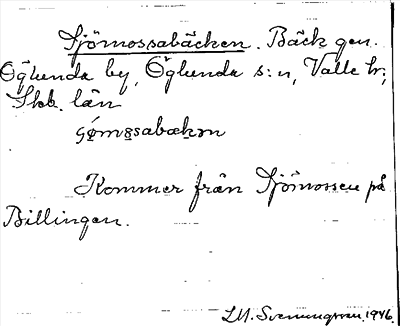 Sjömossabäcken. Bäck gen.
Öglunda by, Öglunda s:n, Valle hr;
Skb. län
Kommer från Sjömossen på
Billingen.
L.M. Svenungsson, 1946.